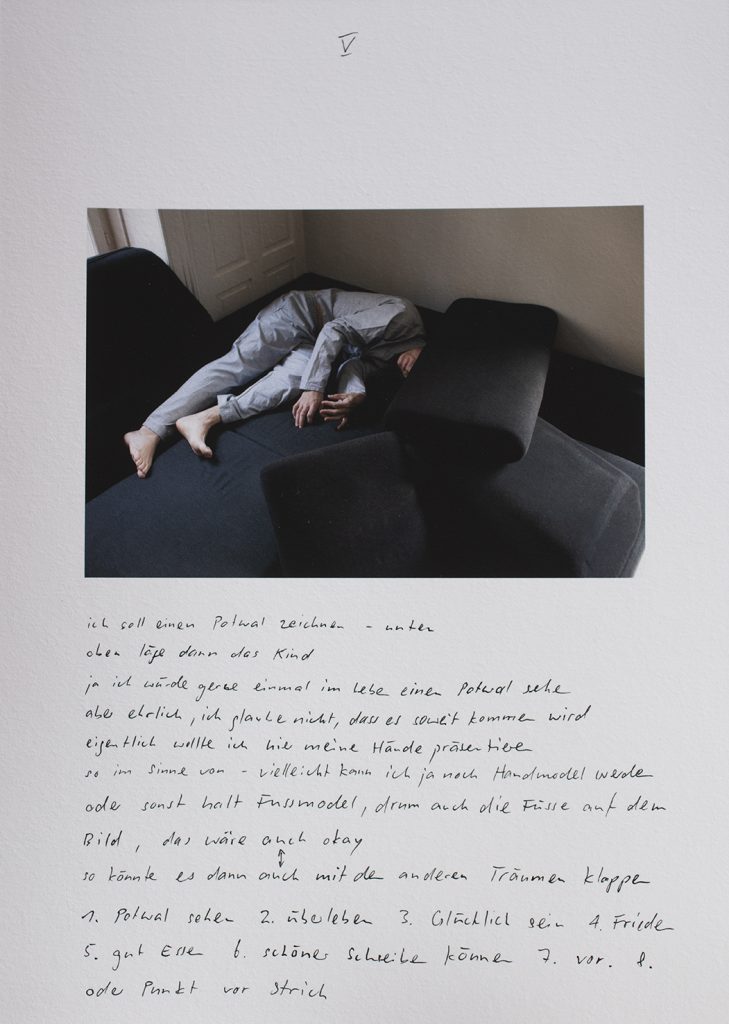 V
ich soll einen Potwal zeichnen - unten
oben läge dann das Kind
ja ich würde gerne einmal im leben einen Potwal sehe
aber ehrlich, ich glaube nicht, dass es soweit kommen wird
eigentlich wollte ich hier meine Hände präsentieren
so im Sinne von - vielleicht kann ich ja noch Handmodel werde
oder sonst halt Fussmodel, drum auch die Füsse auf dem
Bild, das wäre auch okay
↕
so könnte es dann auch mit den anderen Träumen klappen
1. Potwal sehen 2. überleben 3. Glücklich sein 4. Frieden
5. gut Essen 6. schöner Schreibe können 7. vor. 8.
oder Punkt vor Strich